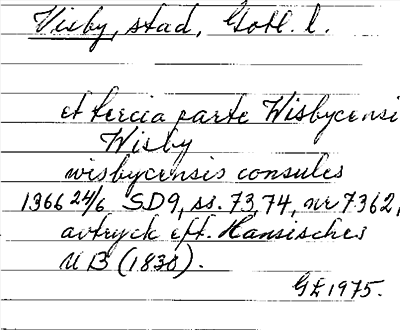 Visby, stad, Gotl. l.
et tercia parte Wisbycensi
Wisby
wisbycensis consules
1366 24/6 SD9, ss. 73,74, nr 7362,
avtryck eft. Hansisches
UB (1830).
GL 1975.